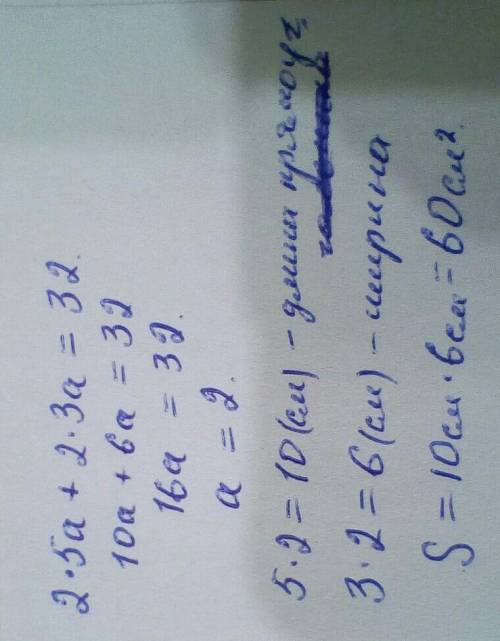 2·5a + 2·3a = 32.
10a + 6a = 32
16a = 32.
a = 2.
5·2 = 10 (см) – длина прямоуг.
3·2 = 6 (см) – ширина
S = 10см·6см = 60см².